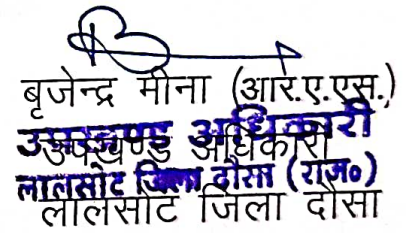 बृजेन्द्र मीना (आर.ए.एस.)
उपखण्ड अधिकारी
उपखण्ड अधिकारी
लालसोट जिला दौसा (राज०)
लालसोट जिला दौसा